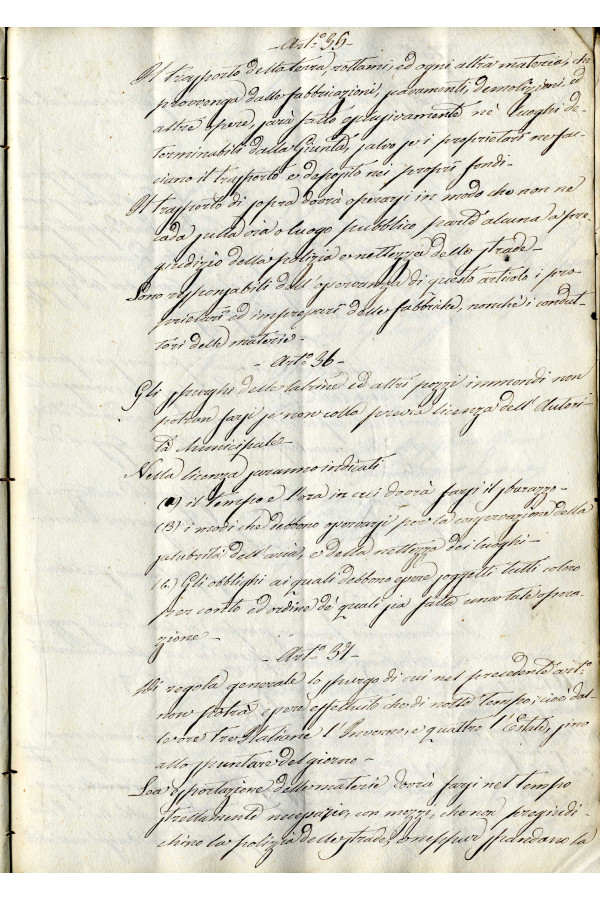 - Art.º 35 -
Il trasporto della terra, rottami, ed ogni altra materia, che
provvenga dalle fabbricazioni, pavamenti, demolizioni, ed
altre opere, sarà fatto esclusivamente nè luoghi de-
terminabili dalla Giunta, salvo se i proprietari ne fac-
ciano il trasporto e deposito nei propri fondi -
Il trasporto di sopra dovrà operarsi in modo che non ne
cada sulla via o luogo pubblico parte alcuna a pre-
giudizio della polizia e nettezza delle strade -
Sono responsabili dell'osservanza di questo articolo i pro-
prietari ed impresari delle fabbriche, nonchè i condut-
tori delle materie -
- Art.º 36 -
Gli spurghi delle latrine ed altri pozzi immondi non
potran farsi se non colla previa licenza dell'Autori-
tà Municipale -
Nella licenza saranno indicati
(A) il tempo e l'ora in cui dovrà farsi il sbarazzo -
(B) i modi che debbono operarsi per la conservazione della
salubrità dell'aria, e della nettezza dei luoghi -
(C) Gli obblighi ai quali debbono essere soggetti tutti coloro
per conto ed ordine de' quali sia fatta una tale opera-
zione -
- Art.º 37 -
Di regola generale lo spurgo di cui nel precedente art.º
non potrà essere effettuito che di notte tempo, cioè dal-
le ore tre Italiane l'Inverno, e quattro l'Estate, sino
allo spuntare del giorno -
La esportazione delle materie dovrà farsi nel tempo
strettamente necessario, con mezzi, che non pregiudi-
chino la polizia delle strade, e neppure spandano la